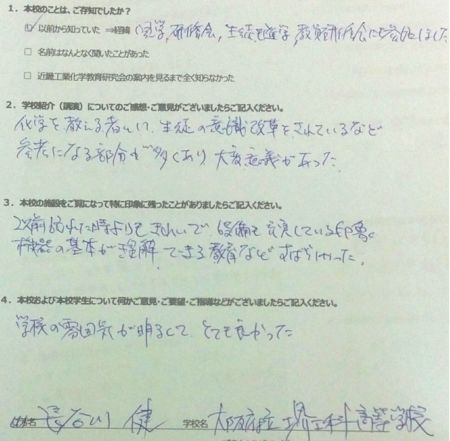 1．本校のことは、ご存知でしたか？
☑ 以前から知っていた ⇒経緯（見学, 研修会, 生徒も進学, 教員研修会にも参加しました
□ 名前はなんとなく聞いたことがあった
□ 近畿工業化学教育研究会の案内を見るまで全く知らなかった
2．学校紹介（講演）についてのご感想・ご意見がございましたらご記入ください。
化学を教える者として, 生徒の意識改革をされているなど
参考になる部分が多くあり 大変意義があった.
3．本校の施設をご覧になって特に印象に残ったことがありましたらご記入ください。
以前 訪れた時よりもきれいで, 設備も充実している印象。
機器の基本が理解できる教育など すばらしかった.
4．本校および本校学生について何かご意見・ご要望・ご指導などがございましたらご記入ください。
学校の雰囲気が明るくて, とても良かった
長谷川 健 学校名 大阪府立堺工科高等学校